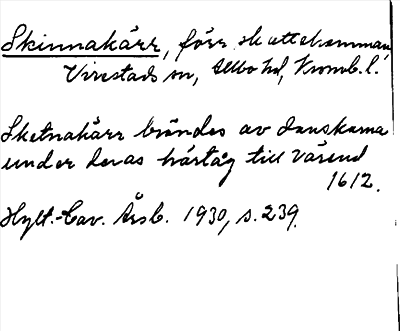 Skinnakärr, förr skattehemman,
Virestads sn, Allbo hd, Kronob. l.
Sketnakärr brändes av danskarna
under deras härtåg till Värend
1612.
Hylt.-Cav. Årsb. 1930, s. 239.